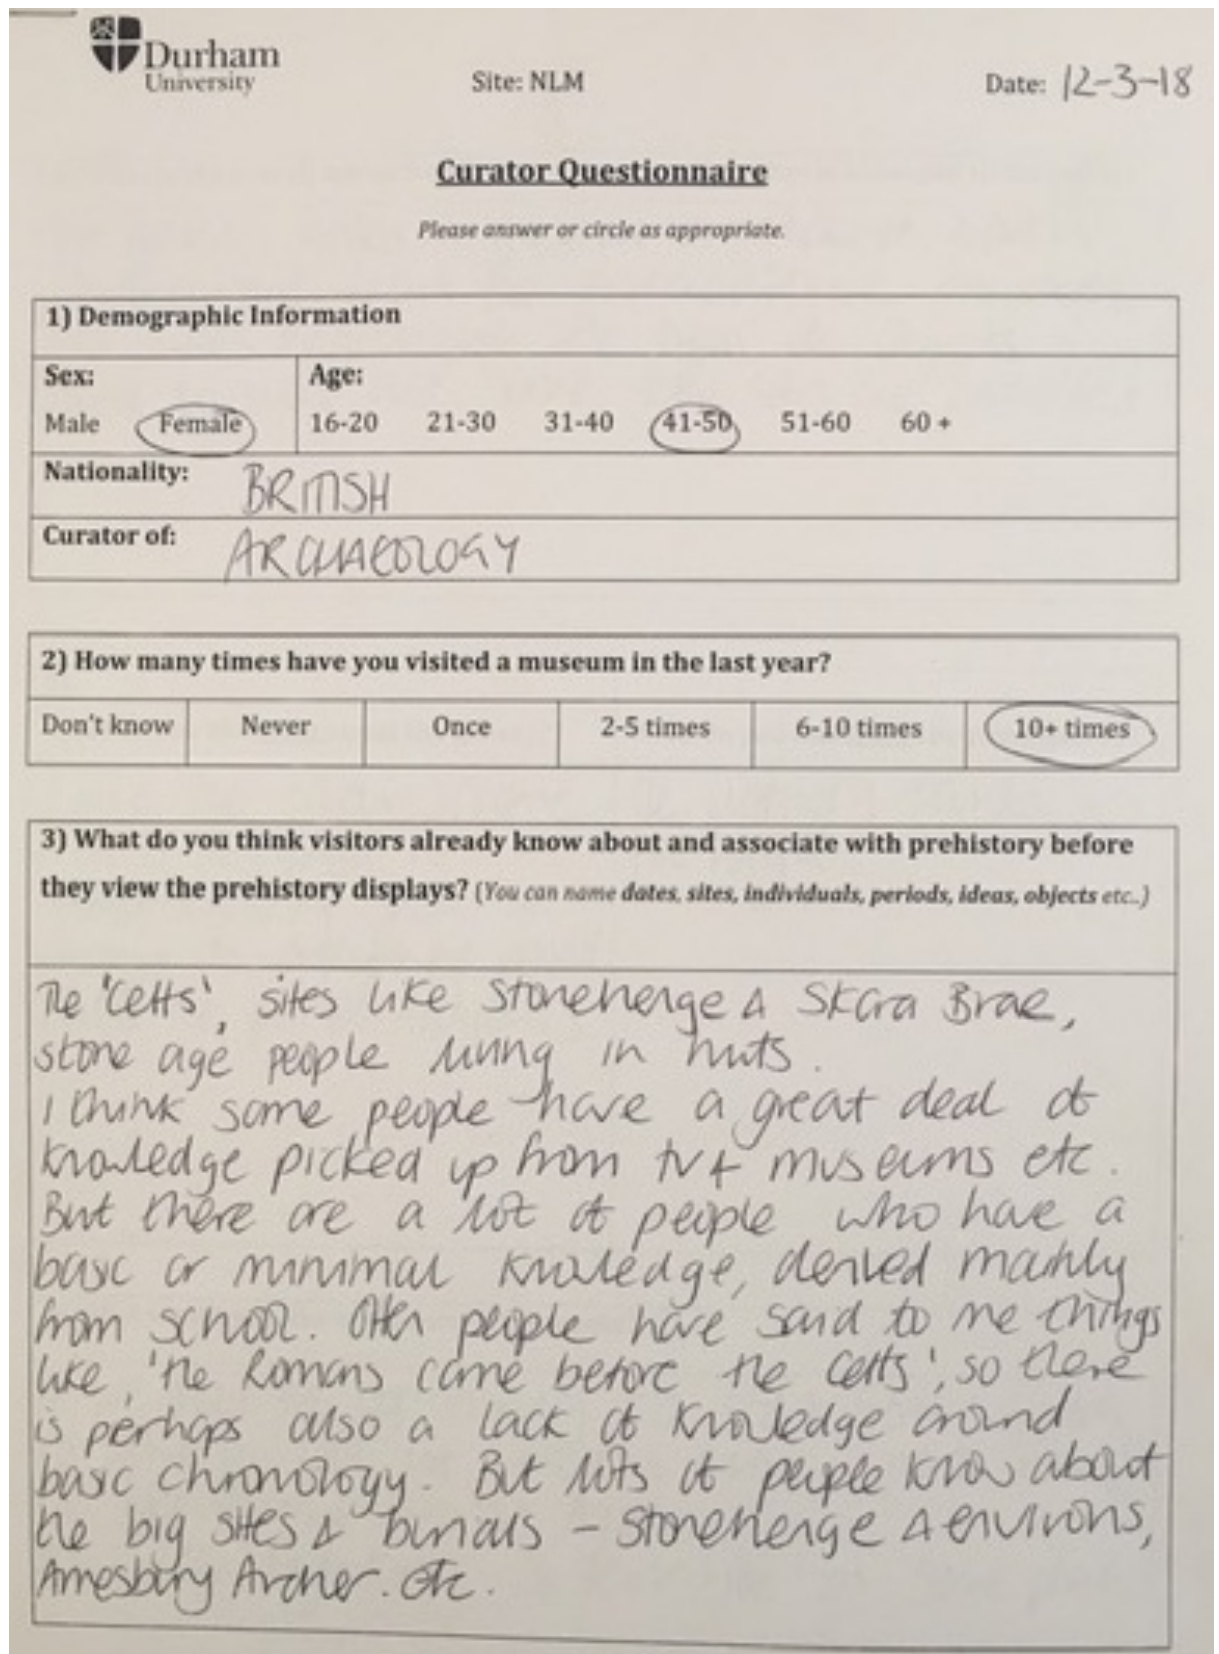 Durham
University
Site: NLM
Date: 12-3-18
Curator Questionnaire
Please answer or circle as appropriate.
1) Demographic Information
Sex:
Age:
Male Female 16-20 21-30 31-40 41-50 51-60 60 +
Nationality: BRITISH
Curator of: ARCHAEOLOGY
2) How many times have you visited a museum in the last year?
Don't know Never Once 2-5 times 6-10 times 10+ times
3) What do you think visitors already know about and associate with prehistory before
they view the prehistory displays? (You can name dates, sites, individuals, periods, ideas, objects etc..)
The 'Celts', sites like Stonehenge & Skara Brae,
stone age people living in huts.
I think some people have a great deal of
knowledge picked up from tv & museums etc.
But there are a lot of people who have a
basic or minimal knowledge, derived mainly
from school. Often people have said to me things
like, 'the Romans came before the Celts', so there
is perhaps also a lack of knowledge around
basic chronology. But lots of people know about
the big sites & burials - Stonehenge & environs,
Amesbury Archer. etc.